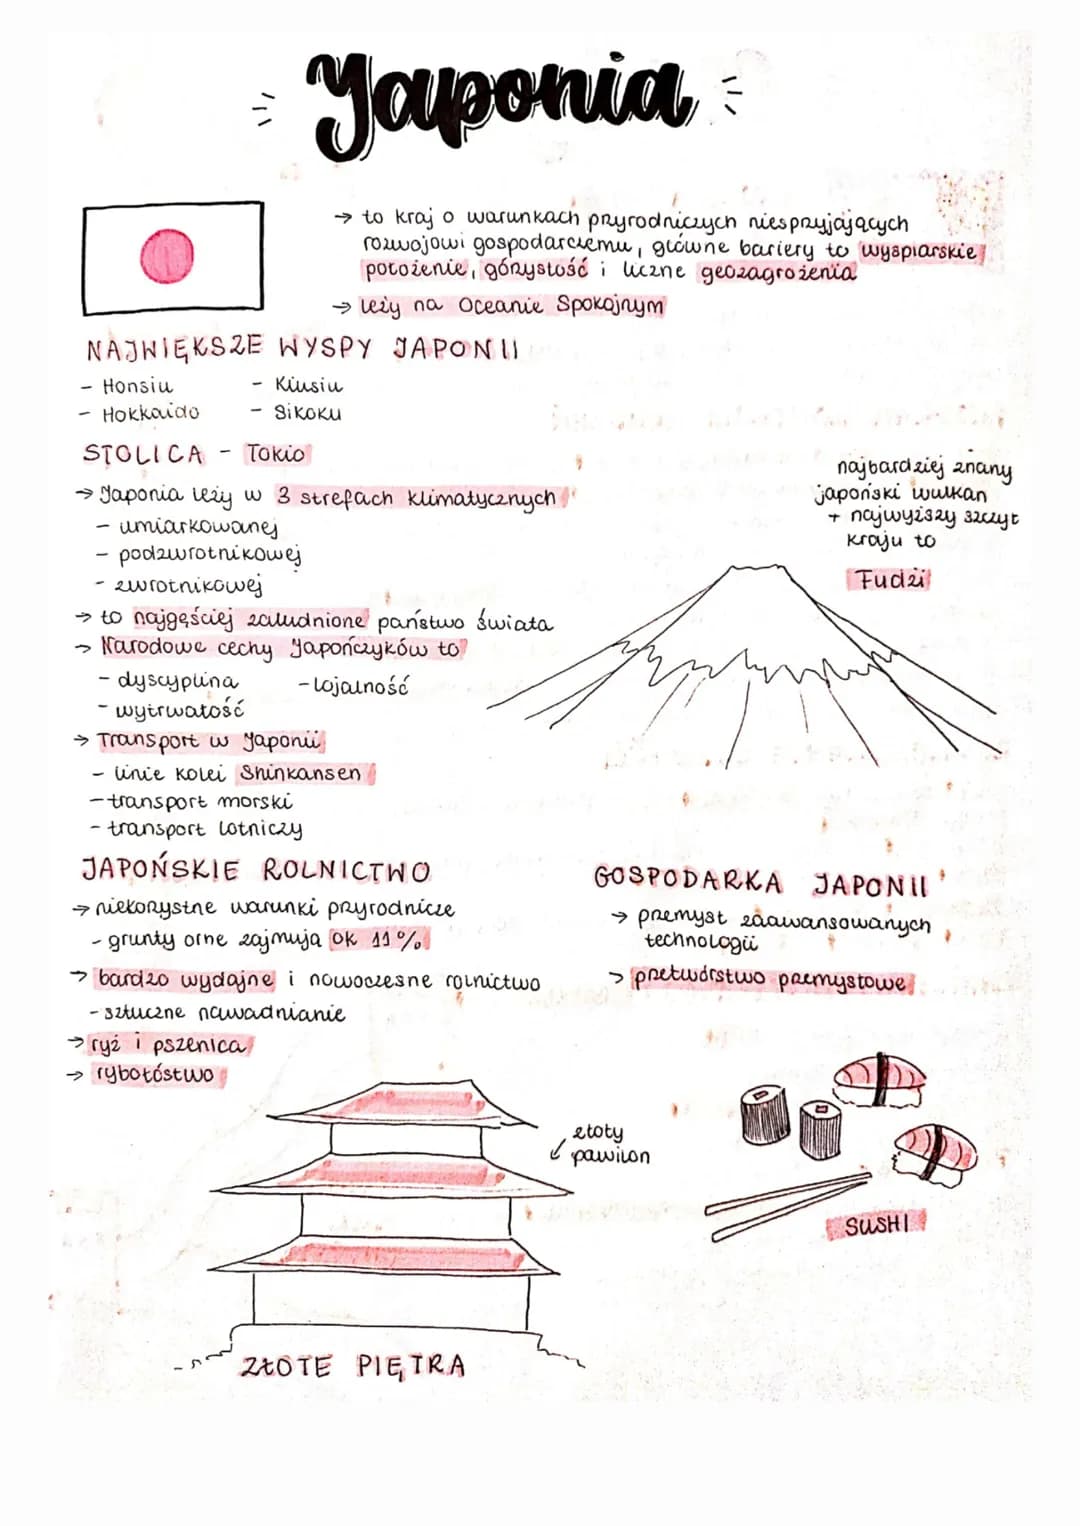 Japonia
→ to kraj o warunkach przyrodniczych niesprzyjających
rozwojowi gospodarczemu, główne bariery to wyspiarskie
położenie, górzystość i liczne geozagrożenia
→ leży na Oceanie Spokojnym
NAJWIĘKSZE WYSPY JAPONII
- Honsiu - Kiusiu
- Hokkaido - Sikoku
STOLICA - Tokio
→ Japonia leży w 3 strefach klimatycznych
- umiarkowanej
- podzwrotnikowej
- zwrotnikowej
→ to najgęściej zaludnione państwo świata
→ Narodowe cechy Japończyków to
- dyscyplina - lojalność
- wytrwałość
→ Transport w Japonii
- linie kolei Shinkansen
- transport morski
- transport lotniczy
najbardziej znany
japoński wulkan
+ najwyższy szczyt
kraju to
Fudżi
JAPOŃSKIE ROLNICTWO
→ niekorzystne warunki przyrodnicze
- grunty orne zajmują ok 11%
→ bardzo wydajne i nowoczesne rolnictwo
- sztuczne nawadnianie
→ ryż i pszenica
→ rybołóstwo
GOSPODARKA JAPONII
→ przemysł zaawansowanych
technologii
→ przetwórstwo przemysłowe
złoty
pawilon
SUSHI
ZŁOTE PIĘTRA